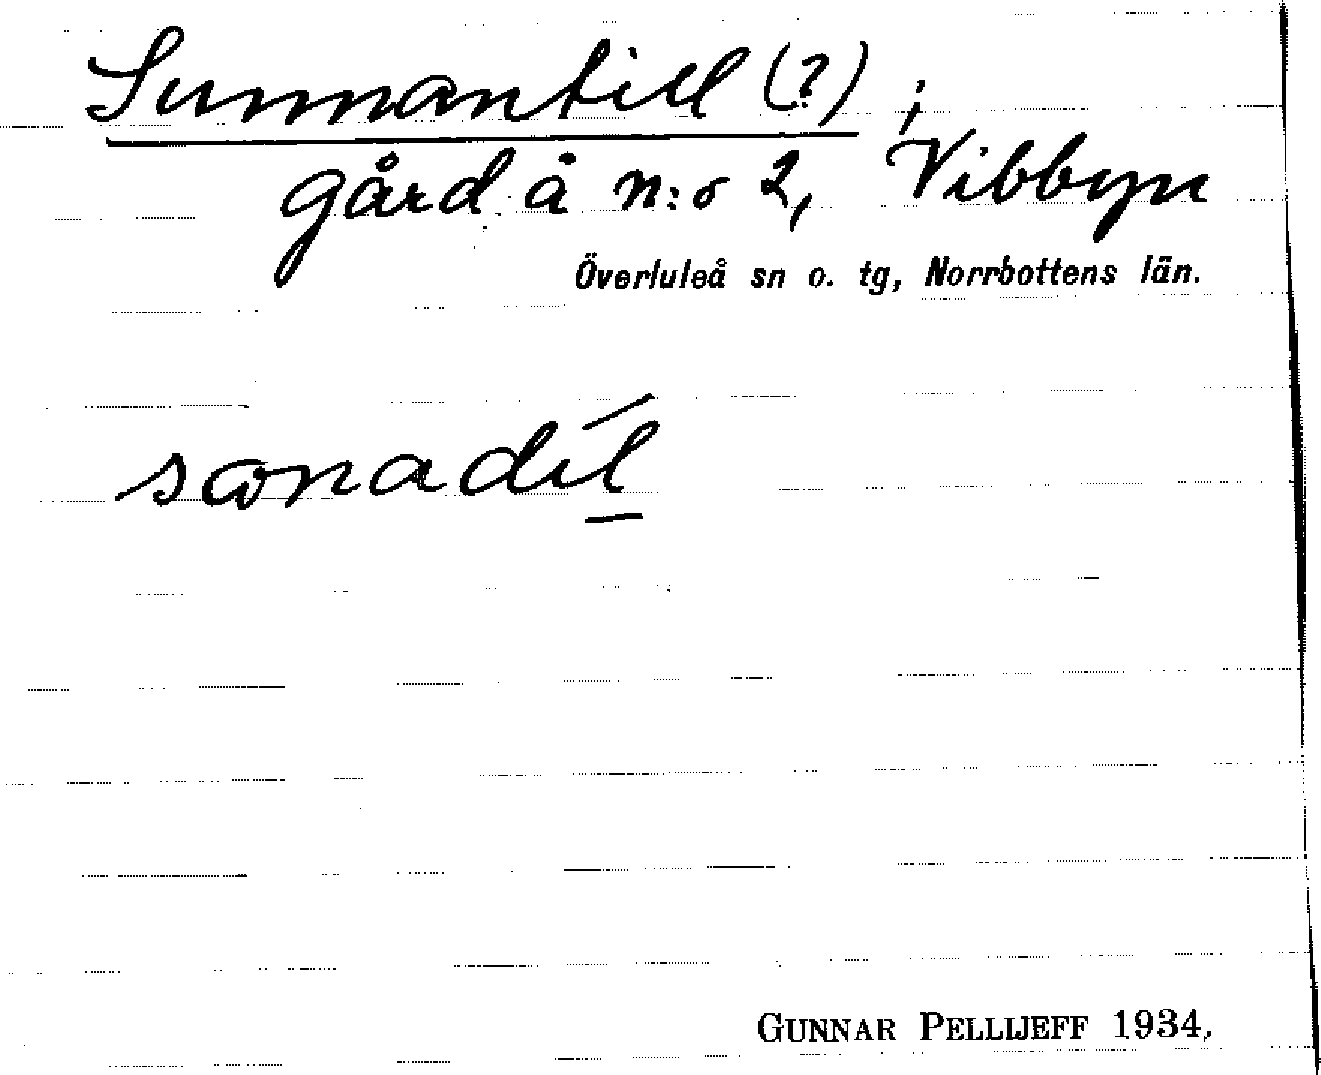 Sunnantill (?);
gård å n:o 2, Vibbyn
Överluleå sn o. tg, Norrbottens län.
GUNNAR PELLIJEFF 1934,